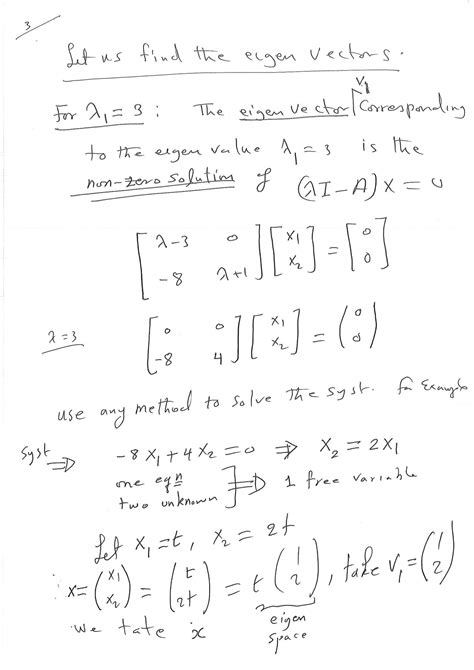 3
Let us find the eigen vectors.
For λ₁ = 3 : The eigen vector V₁ Corresponding
to the eigen value λ₁ = 3 is the
non-zero solution of (λI − A)X = 0
[ λ−3 0 ; −8 λ+1 ] [ x₁ ; x₂ ] = [ 0 ; 0 ]
λ=3 [ 0 0 ; −8 4 ] [ x₁ ; x₂ ] = ( 0 ; 0 )
use any method to solve the syst. for Example
syst ⇒ −8x₁ + 4x₂ = 0 ⇒ x₂ = 2x₁
one eqn
two unknown ] ⇒ 1 free variable
Let x₁ = t, x₂ = 2t
x = ( x₁ ; x₂ ) = ( t ; 2t ) = t ( 1 ; 2 ), take v₁ = ( 1 ; 2 )
we tate x
eigen
space